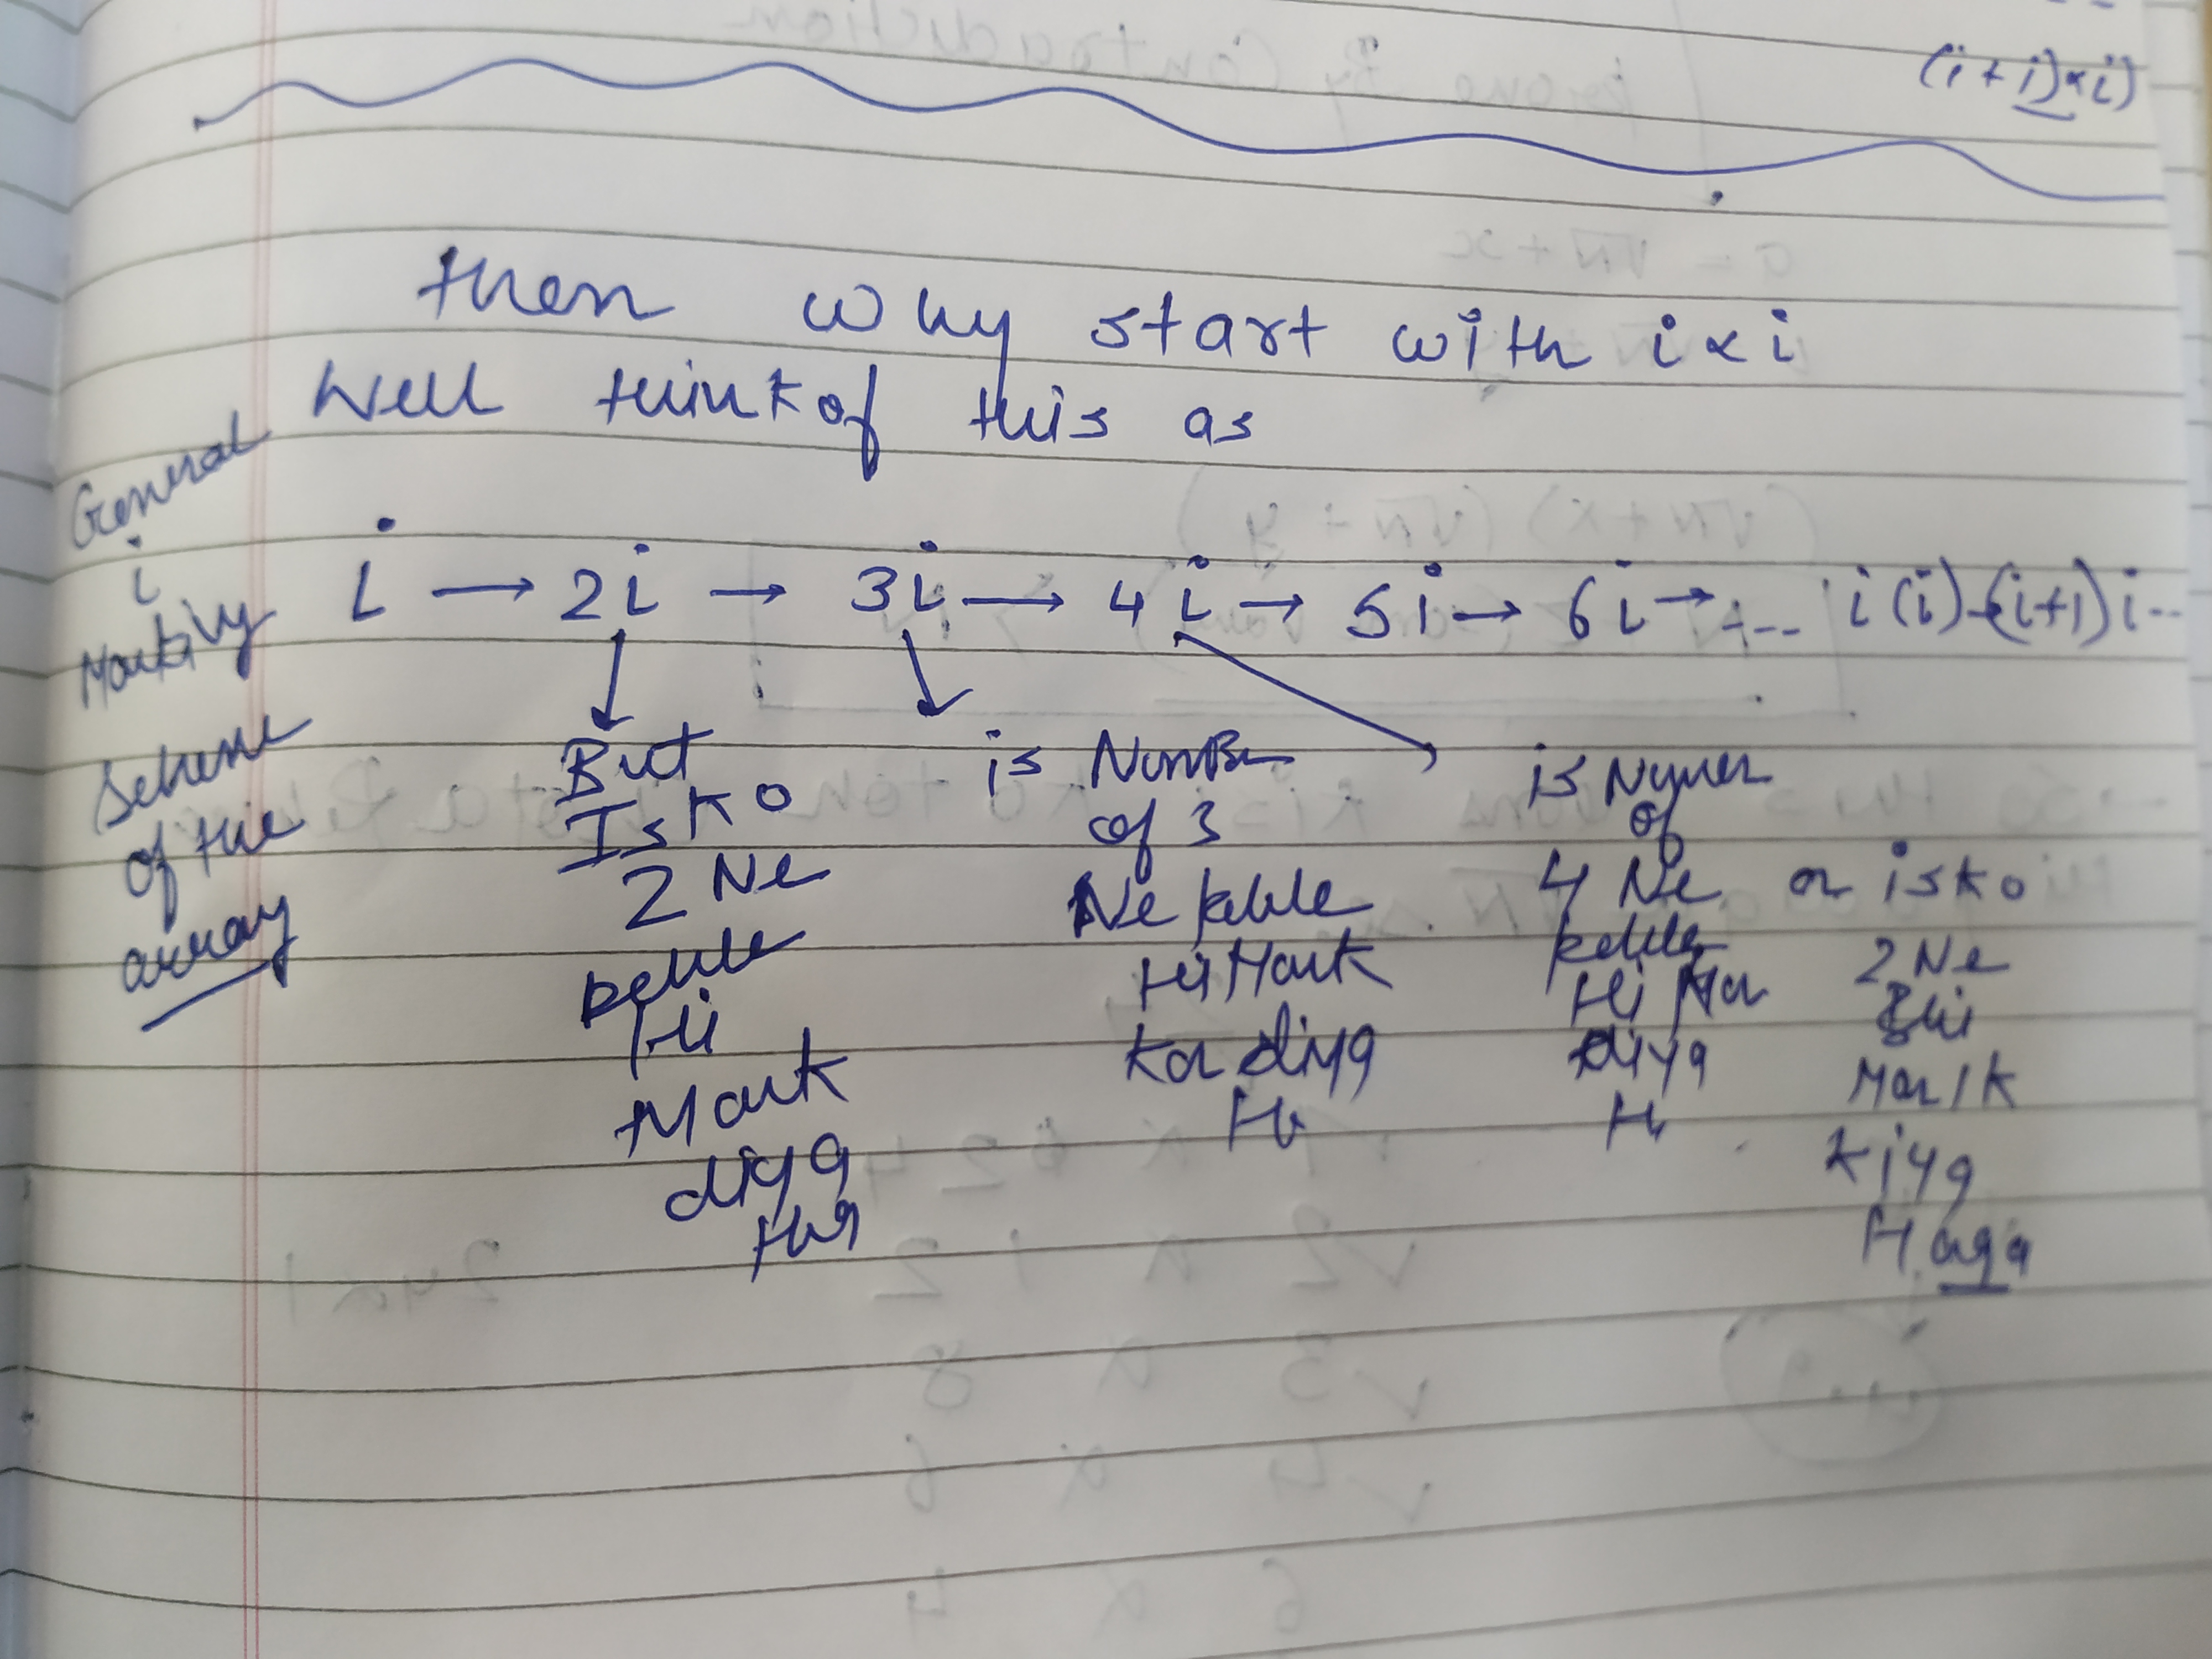 (i + i)×i)
then why start with i × i
Well think of this as
General
i
Marking
Scheme
of the
array
i → 2i → 3i → 4i → 5i → 6i → --- i(i) → (i+1)i --
But
Isko
2 Ne
pehle
Hi
Mark
diya
Ha
is Number
of 3
Ne pehle
Hi Mark
Kar diya
Ha
is Number
of
4 Ne
pehle
Hi Mar
diya
H
or isko
2 Ne
Bhi
Mark
kiya
Haga